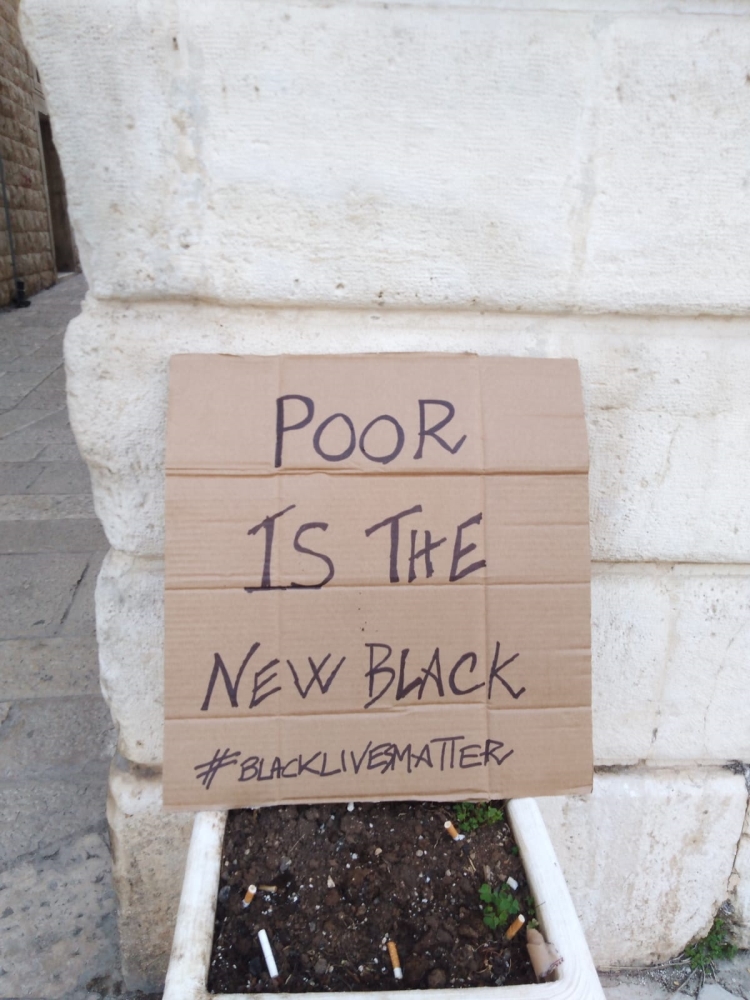 POOR
IS THE
NEW BLACK
#BLACKLIVESMATTER